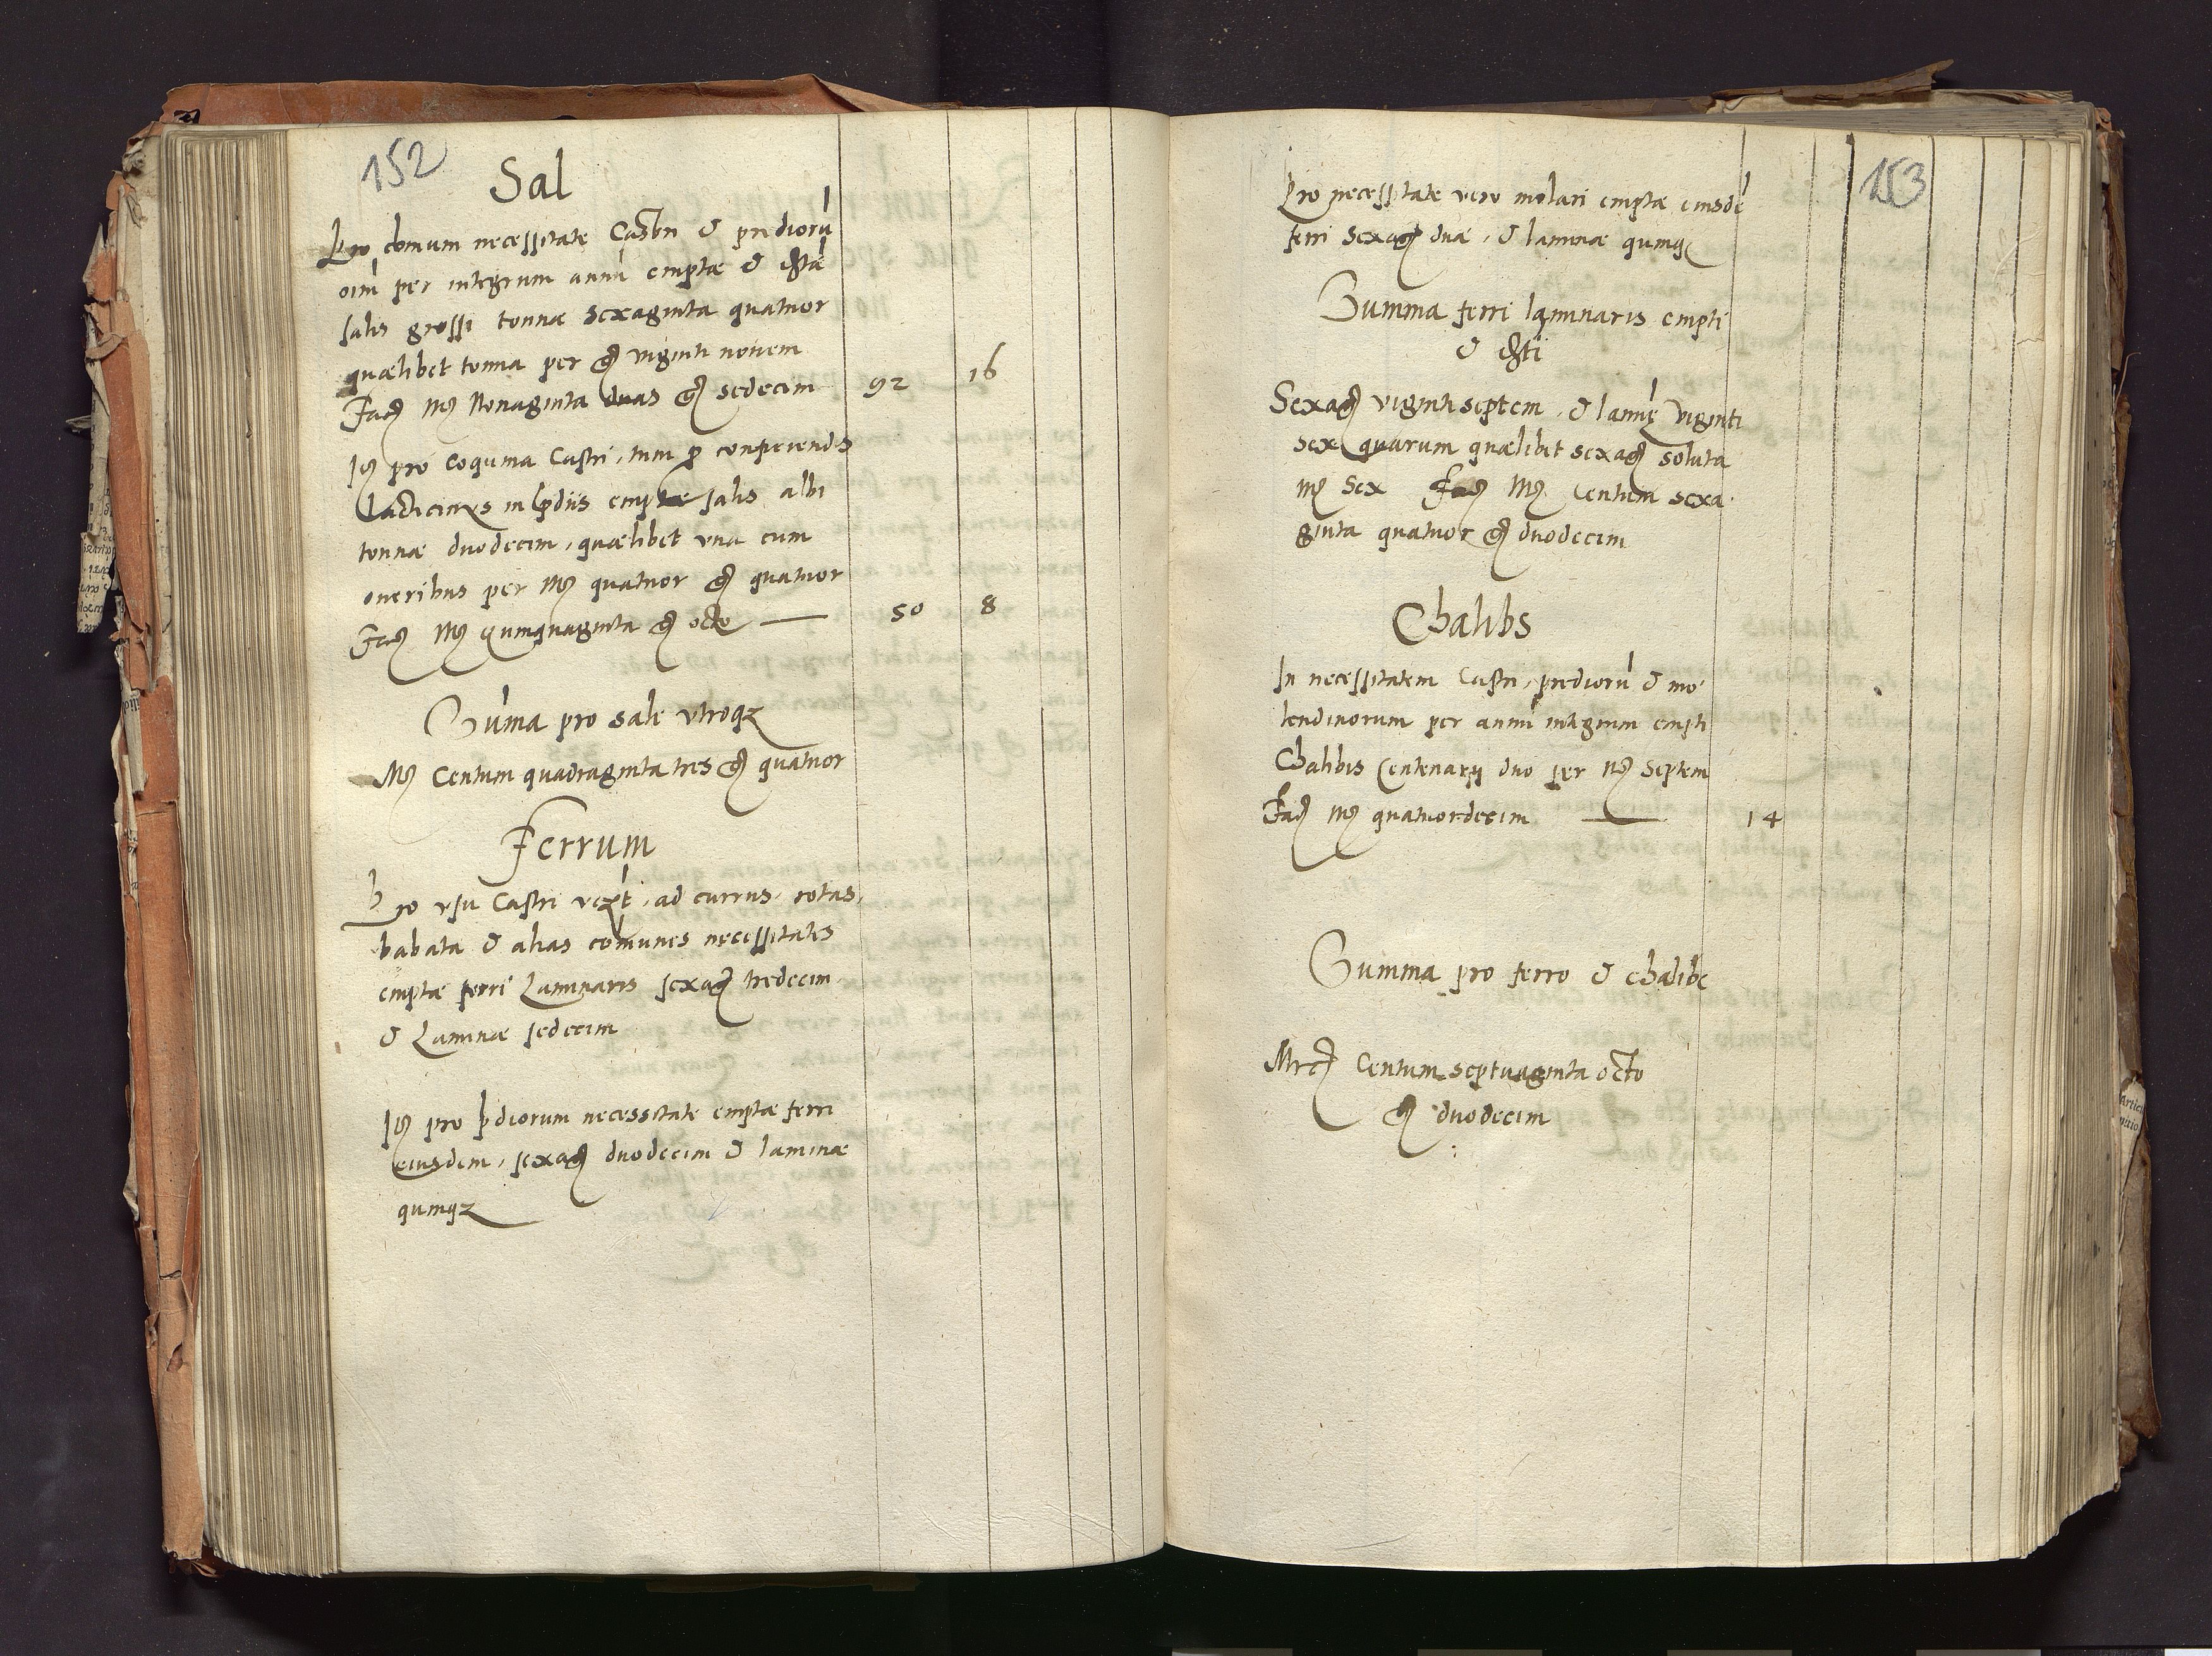 152
Sal
Pro cōmum necessitate Castri & prediorū
oīm per integrum annū emptae & 
salis grossi tonnae sexaginta quatuor
quaelibet tonna per gͤ viginti novem
Facͤ Mͤ Nonaginta duas gͤ sedecim 92 16
Itͤ pro coquina Castri, tum ꝑ conficiendis
Lacticinys in p̄diis emptae salis albi
tonnae duodecim, quaelibet una cum
oneribus per Mͤ quatuor gͤ quatuor
Facͤ Mͤ quinquaginta gͤ octo — 50 8
Sum̄a pro sale utroqꝫ
Mͤ Centum quadraginta tres gͤ quatuor
Ferrum
Pro usu Castri , ad currus, rotas,
babata & alias com̄unes necessitates
emptae ferri Laminaris sexagͤ tredecim
& Laminae sedecim
Itͤ pro p̄diorum necessitate emptae ferri
eiusdem, sexagͤ duodecim & laminae
quinqꝫ
153
Pro necessitate vero molari emptae eiusdē
ferri sexagͤ duae, & laminae quinqꝫ
Summa ferri laminaris empti
& 
Sexagͤ viginti septem, & lamīę viginti
sex quarum quaelibet sexagͤ soluta
Mͤ Sex Facͤ Mͤ Centum sexa
ginta quatuor gͤ duodecim
Chalibs
In necessitatem Castri, prediorū & mo
lendinorum per annū integrum empti
Chalibis Centenarii duo per Mͤ Septem
Facͤ Mͤ quatuordecim — 14
Summa pro ferro & chalibe
Mrcͤ Centum septuaginta octo
gͤ duodecim